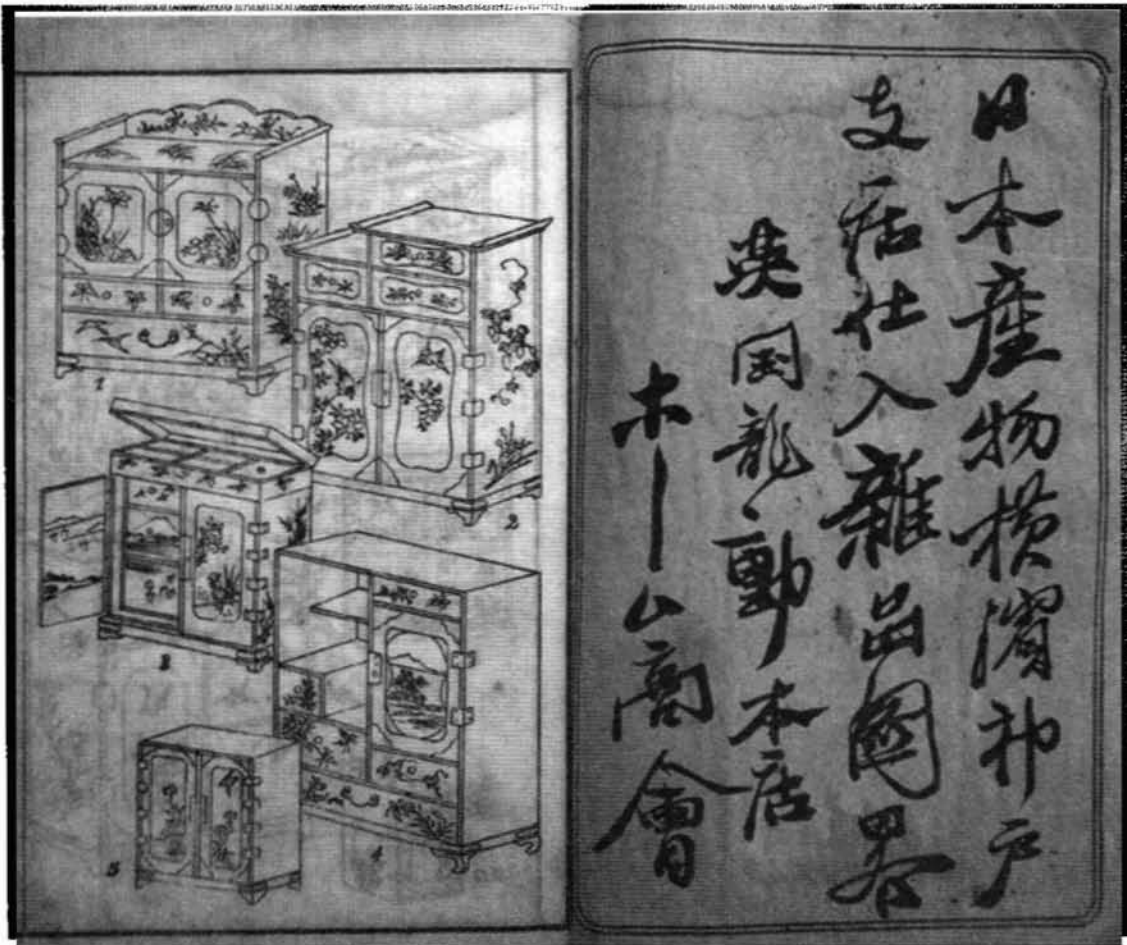 日本産物横濱神戸
支店仕入雜品圖畧
英国龍動本店
ホーム商會
1
2
3
4
5